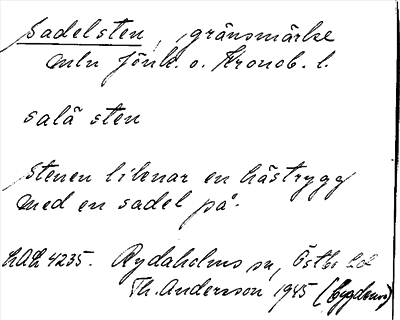 Sadelsten, gränsmärke
mln Jönk. o. Kronob. l.
salä sten
Stenen liknar en hästrygg
med en sadel på.
LAL 4235. Rydaholms sn, Östbo hd
Th. Andersson 1945 (bygdeund)